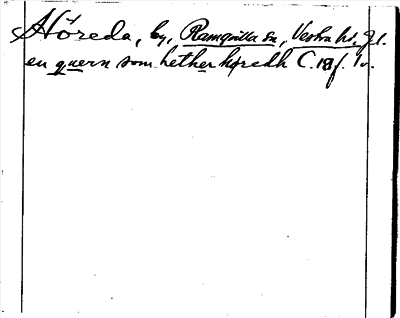 Höreda, by, Ramquilla sn, Vestra hd. Jl.
en quern som hether höredh C. 19 f. 1v.